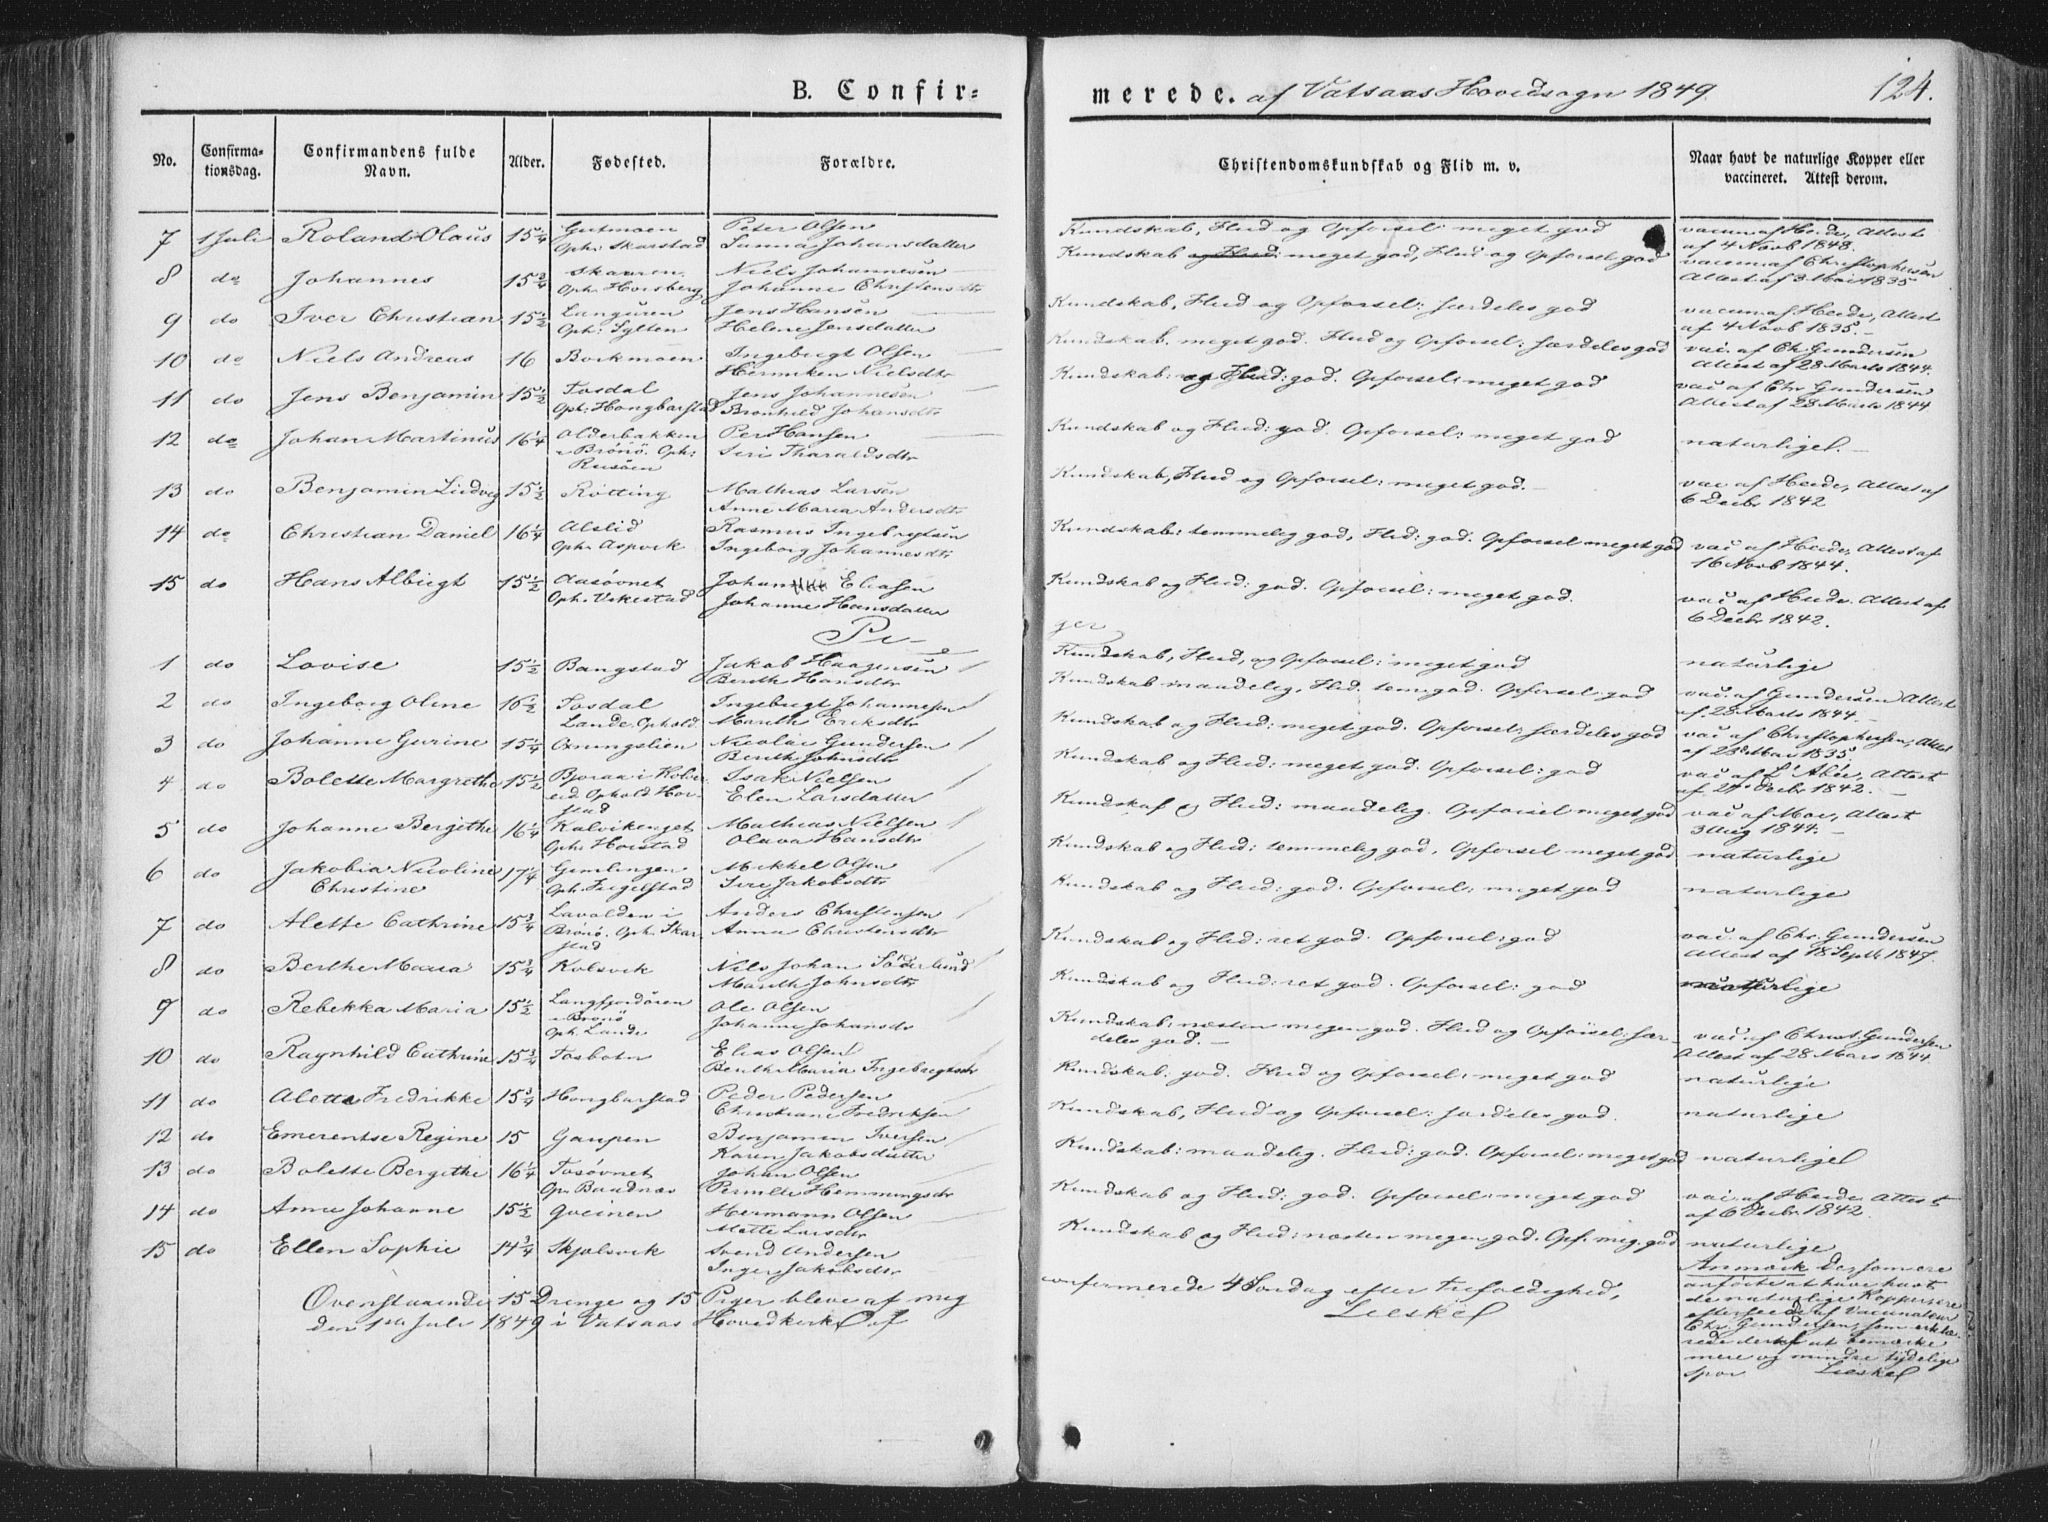 B. Confir=
merede. af Vatsaas Hovedsogn 1849.
124.
No.
Confirma-
tionsdag.
Confirmandens fulde
Navn.
Alder.
Fødested.
Forældre.
Christendomskundskab og Flid m. v.
Naar havt de naturlige Kopper eller
vaccineret. Attest derom.
7 1 Juli Roland Olaus 15 1/4 Gutmoen Oph: Skarstad Peter Olsen
Sanna Johansdatter
Kundskab, Flid og Opførsel: meget god
vaccin af Heide, Attest
af 4 Novb 1848.
8 do Johannes 15 3/4 Skauren. Oph. Horsberg Niels Johannesen
Johanne Christensdtr
Kundskab og Flid: meget god, Flid og Opførsel god
vaccin af Christophersen
Attest af 3 Mai 1835
9 do Iver Christian 15 1/2 Languren Oph: Sylten Jens Hansen
Helene Jensdatter
Kundskab, Flid og Opførsel: særdeles god
vaccin af Heide, Attest
af 4 Novb 1835.
10 do Niels Andreas 16 Borkmoen Ingebrigt Olsen
Hermiken Nielsdtr
Kundskab. meget god. Flid og Opførsel: særdeles god
vac. af Ch. Gundersen
Attest af 28 Marts 1844.
11 do Jens Benjamin 15 1/2 Tosdal Oph: Hongbarstad Jens Johannesen
Bronhild Johansdtr
Kundskab: og Flid: god. Opførsel: meget god
vac af Chr Gundersen
Attest af 28 Marts 1844.
12 do Johan Martinus 16 1/4 Olderbakken
i Brönö. Oph:
Rusöen Per Hansen
Siri Tharaldsdtr
Kundskab og Flid: god. Opførsel: meget god
naturlige.
13 do Benjamin Ludvig 15 1/2 Røtting Mathias Larsen
Anne Maria Andersdtr
Kundskab, Flid og Opførsel: meget god.
vac af Heide, Attest af
6 Decbr 1842
14 do Christian Daniel 16 1/4 Alslid Oph: Aspvik Rasmus Ingebrigtsen
Ingeborg Johannesdtr
Kundskab: temmelig god, Flid: god. Opførsel meget god
vac af Heide, Attest af
16 Novb 1844.
15 do Hans Albrigt 15 1/2 Aasövnet Oph. Vikestad Johan Eliasen
Johanne Hansdatter
Kundskab og Flid: god. Opførsel: meget god.
vac af Heide. Attest af
6 Decbr 1842.
Pi-
ger
1 do Lovise 15 1/2 Bangstad Jakob Haagensen
Berith Hansdtr
Kundskab, Flid, og Opførsel: meget god
naturlige
2 do Ingeborg Oline 16 1/2 Tosdal
Lande. Ophold Ingebrigt Johannesen
Marith Eriksdtr
Kundskab maadelig, Flid. tem. god. Opførsel: god
vac. af Gundersen Attest
af. 28 Marts 1844.
3 do Johanne Gurine 15 1/4 Ønningslien Nicolai Gundersen
Berith Johnsdtr
Kundskab og Flid: meget god. Opførsel: særdeles god
vac af Christophersen, Attest
af 28 Mai 1835.
4 do Bolette Margrethe 15 1/2 Bjøraa i Kolver
eid Ophold Hor-
stad Isak Nielsen
Elen Larsdatter
Kundskab og Flid: meget god. Opførsel: god
vac af L'Abée, Attest
af 27 Decbr 1842.
5 do Johanne Bergithe 16 1/4 Kalvikenget
Oph: Horstad Mathias Nielsen
Olava Hansdtr
Kundskaf og Flid: maadelig. Opførsel meget god
vac af Moe, Attest
3 Aug 1844.
6 do Jakobia Nicoline
Christine 17 1/4 Gimlingen
Oph. Tegelstad Mikkel Olsen
Siri Jakobsdtr
Kundskab og Flid: temmelig god, Opførsel meget god
naturlige
7 do Alette Cathrine 15 3/4 Lavolden i
Brönö. Oph. Skar-
stad Anders Christensen
Anna Christensdtr
Kundskab og Flid: god. Opførsel: meget god
naturlige
8 do Berthe Maria 15 3/4 Kolsvik Nils Johan Söderlund
Marith Johnsdtr
Kundskab og Flid: ret god. Opførsel: god
vac. af Chr. Gundersen
Attest af 18 Septb 1847.
9 do Rebekka Maria 15 1/2 Langfjordören
i Brönö
Oph. Lande Ole Olsen
Johanne Johansdtr
Kundskab og Flid: ret god. Opførsel: god
naturlige
10 do Raynhild Cathrine 15 3/4 Tosbotn Elias Olsen
Berith Maria Ingebrigtsdtr
Kundskab: næsten megen god. Flid og Opførsel: sær-
deles god.
vac af Christ. Gundersen
Attest af 28 Mars 1844
11 do Alette Fredrikke 15 3/4 Hongbarstad Peder Pedersen
Christiane Fredriksen
Kundskab: god. Flid og Opførsel: meget god
naturlige
12 do Emerentse Regine 15 Gaupen Benjamin Iversen
Karen Jakobsdatter
Kundskab, Flid og Opførsel: særdeles god.
naturlige
13 do Bolette Bergithe 16 1/4 Tosövnet
Op. Baadnæs Johan Olsen
Pernille Hemmingsdtr
Kundskab: maadelig. Flid: god. Opførsel: meget god
naturlige
14 do Anne Johanne 15 1/2 Gveinen Hermann Olsen
Mette Larsdtr
Kundskab og Flid: god. Opførsel: meget god
vac. af Heide Attest
af 6 Decbr. 1842
15 do Ellen Sophie 14 3/4 Skjelsvik Svend Andersen
Inger Jakobsdtr
Kundskab og Flid: næsten megen god. Opf. meg. god
naturlige
Ovenstaaende 15 Drenge og 15 Piger bleve af mig
confirmerede 4 Søndag efter Trefoldighed,
den 1ste Juli 1849 i Vatsaas Hovedkirke
Leeskel
Anmærk De, som ere
anførte at have havt
de naturlige Kopper ere
efterseede af Vaccinateur
Chr. Gundersen, som erklæ-
rede derhos at bemærke
mere og mindre tydelige
spor Leeskel